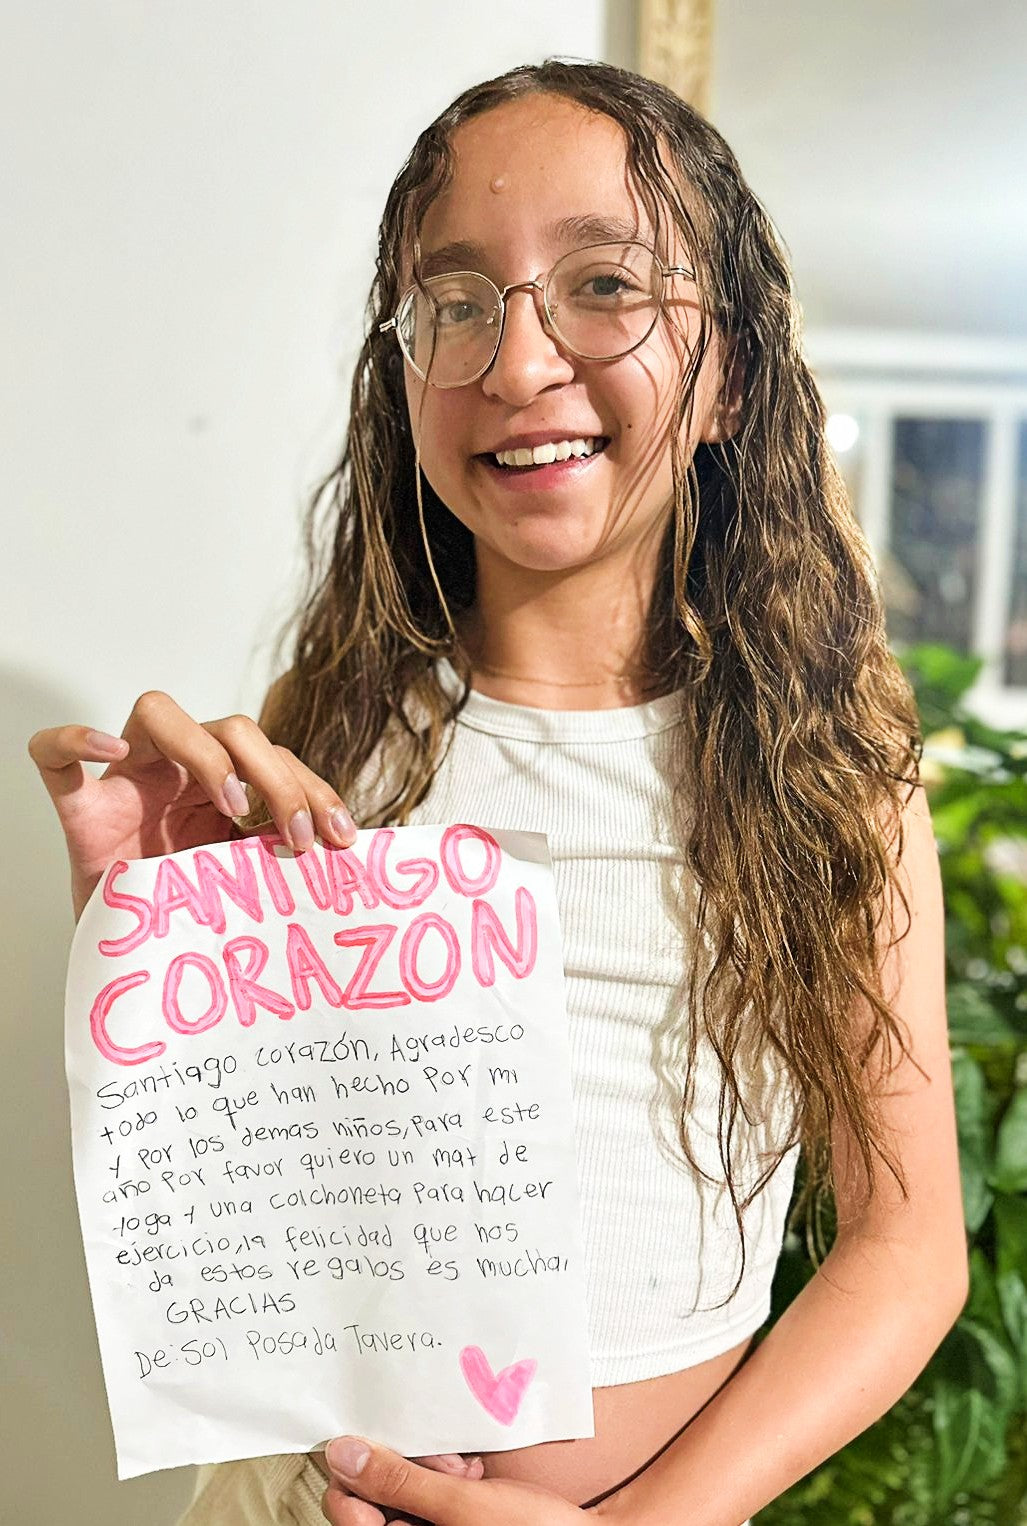 SANTIAGO
CORAZON
Santiago corazón, Agradesco
todo lo que han hecho Por mi
y por los demas niños, Para este
año Por favor quiero un mat de
yoga y una colchoneta Para hacer
ejercicio, la felicidad que nos
da estos regalos es mucha,
GRACIAS
De: Sol Posada Tavera.